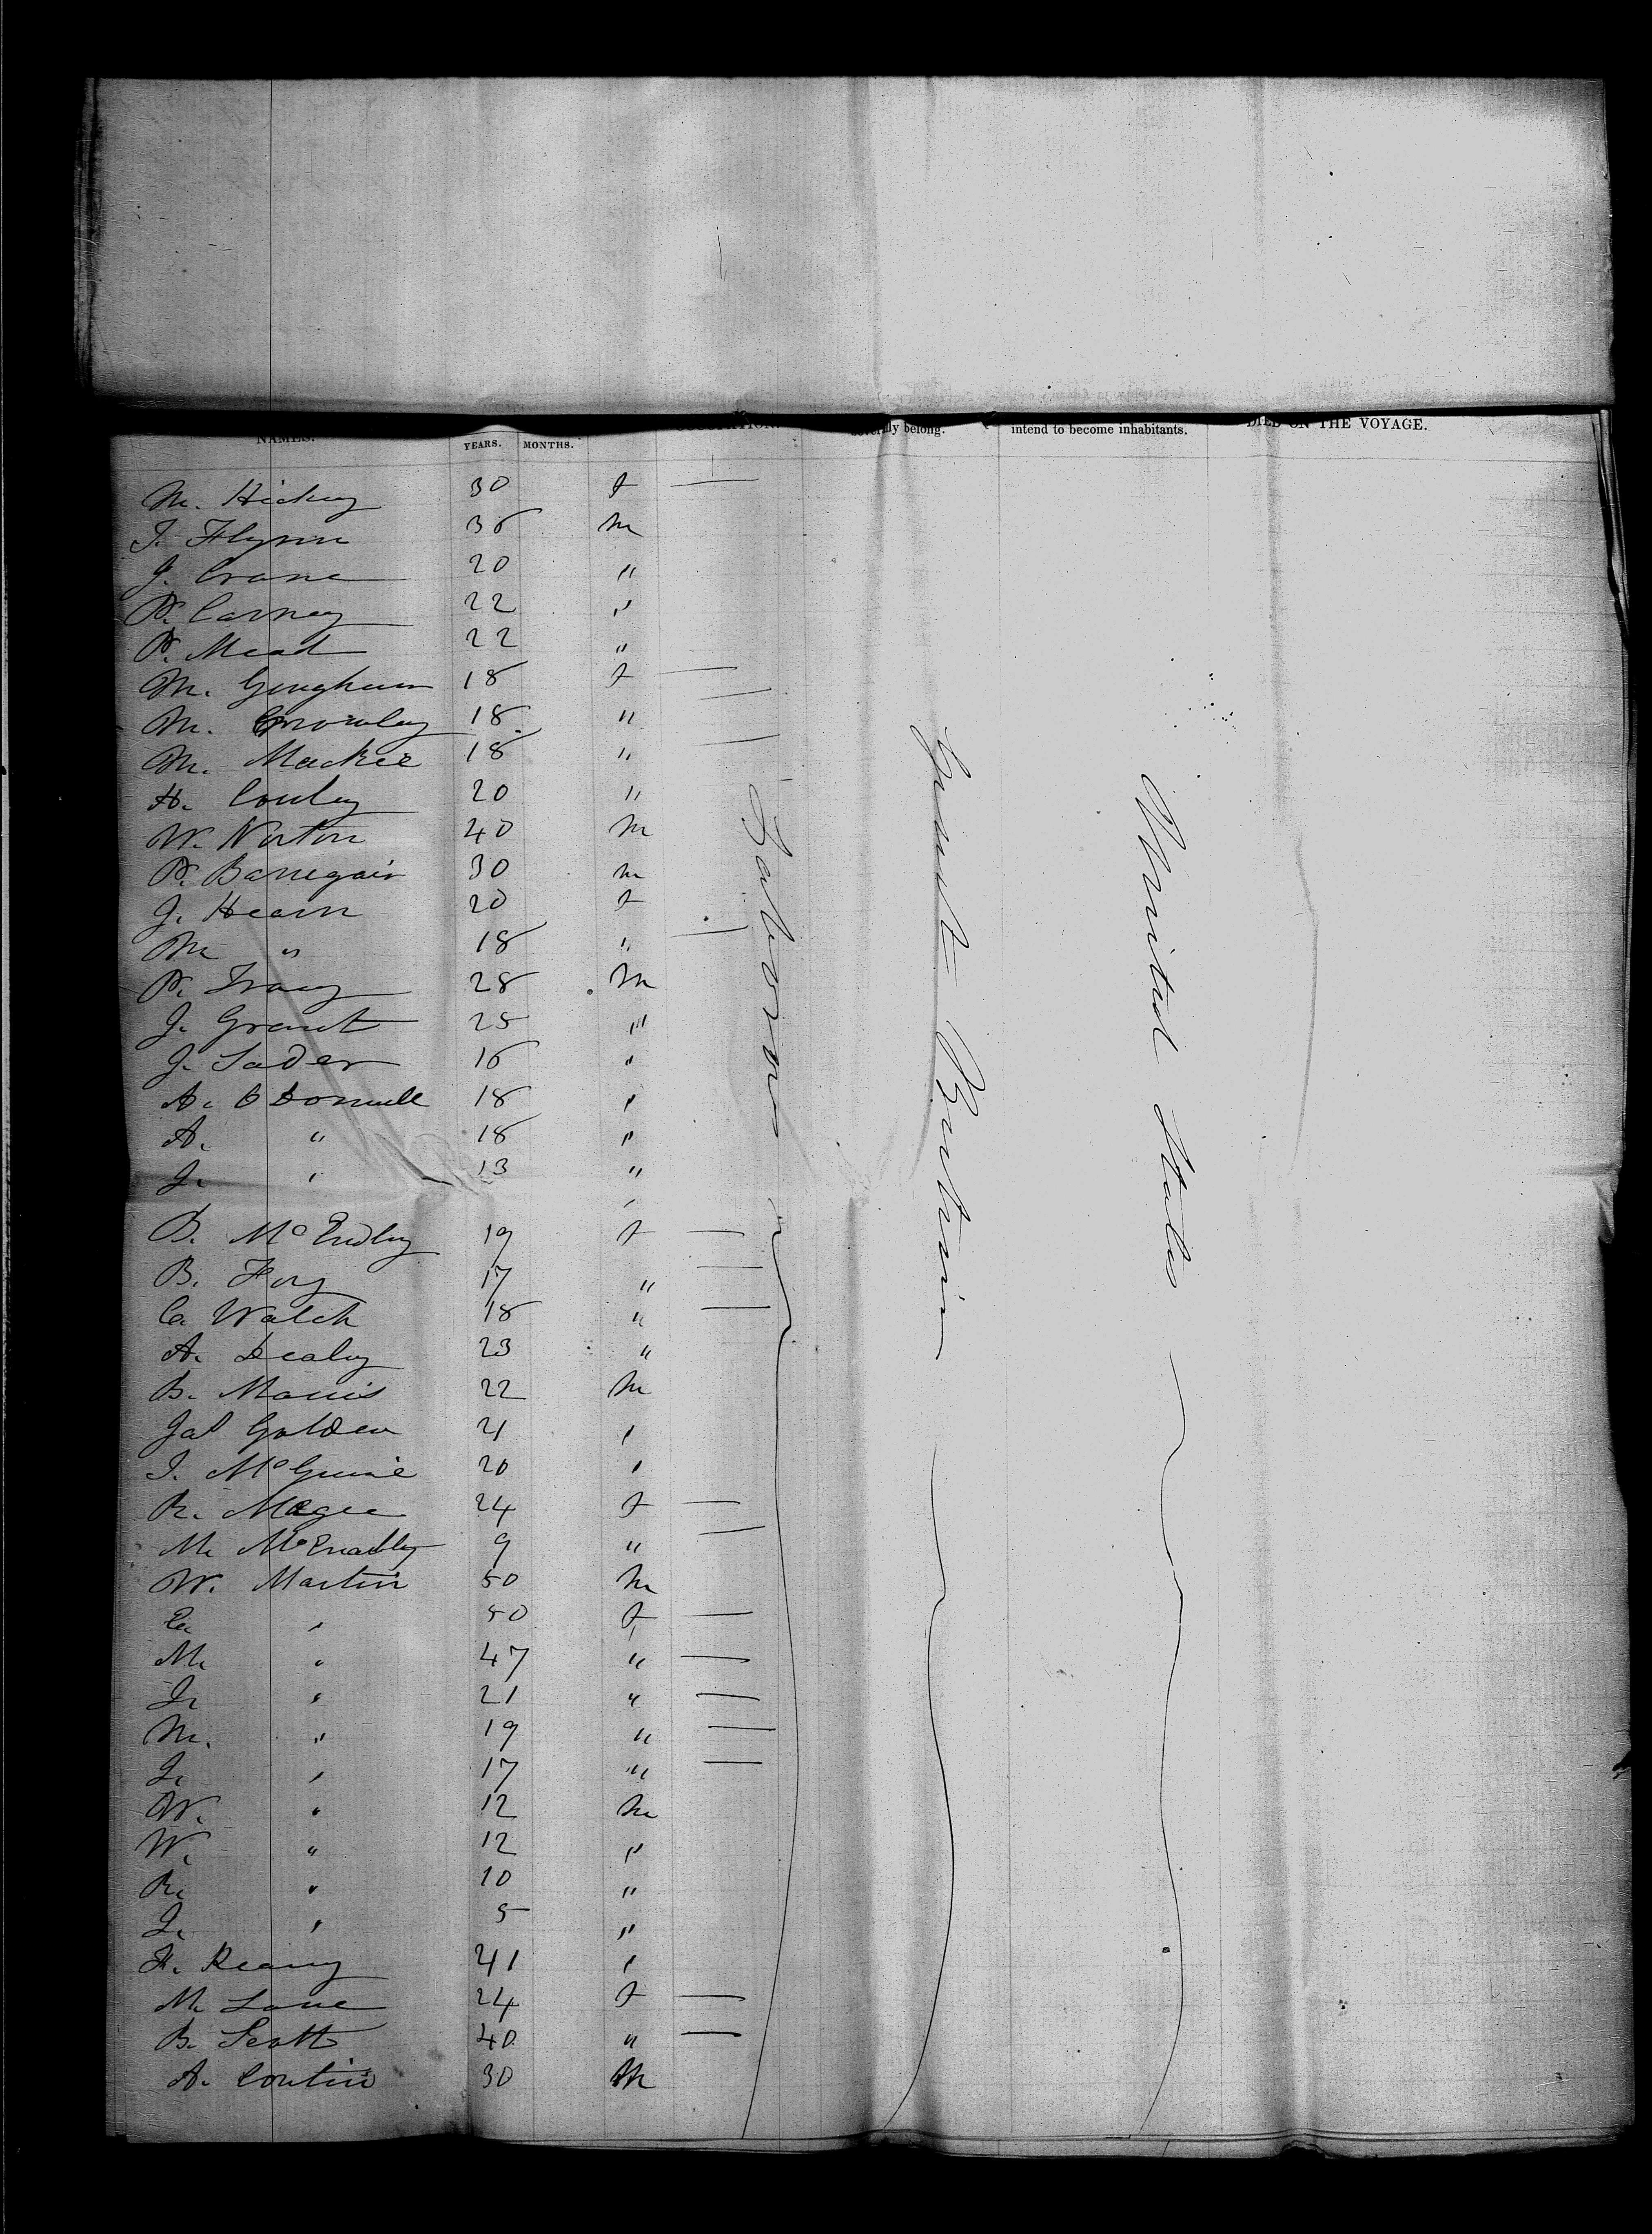 NAMES. YEARS. MONTHS. OCCUPATION. severally belong. intend to become inhabitants. DIED ON THE VOYAGE.
M. Hickey 30 f —
J. Flynn 35 m
J. Crane 20 "
P. Carney 22 "
P. Mead 22 "
M. 18 f —
M. Crowley 18 " —
M. Mackee 18 " —
H. Conley 20 "
W. Norton 40 m
P. 30 m
J. Hearn 20 f
M " 18 " —
P. Tracy 28 m
J. Grant 25 "
J. Sader 16 "
A. O Donnell 18 "
A. " 18 "
J. " 13 "
B. McEndley 19 f —
B. Foy 17 " —
C. Walch 18 " —
A. Dealey 23 "
B. 22 m
Jas Golden 21 "
J. McGuire 20 "
R. Magee 24 f —
M. 9 " —
W. Martin 50 m
E. " 50 f —
M. " 47 " —
J. " 21 " —
M. " 19 " —
J. " 17 " —
W. " 12 m
W. " 12 "
R. " 10 "
J. " 5 "
F. Reany 41 "
M. Lane 24 f —
B. Scott 40 " —
A. 30 m
Laborors
Great Britain
United States